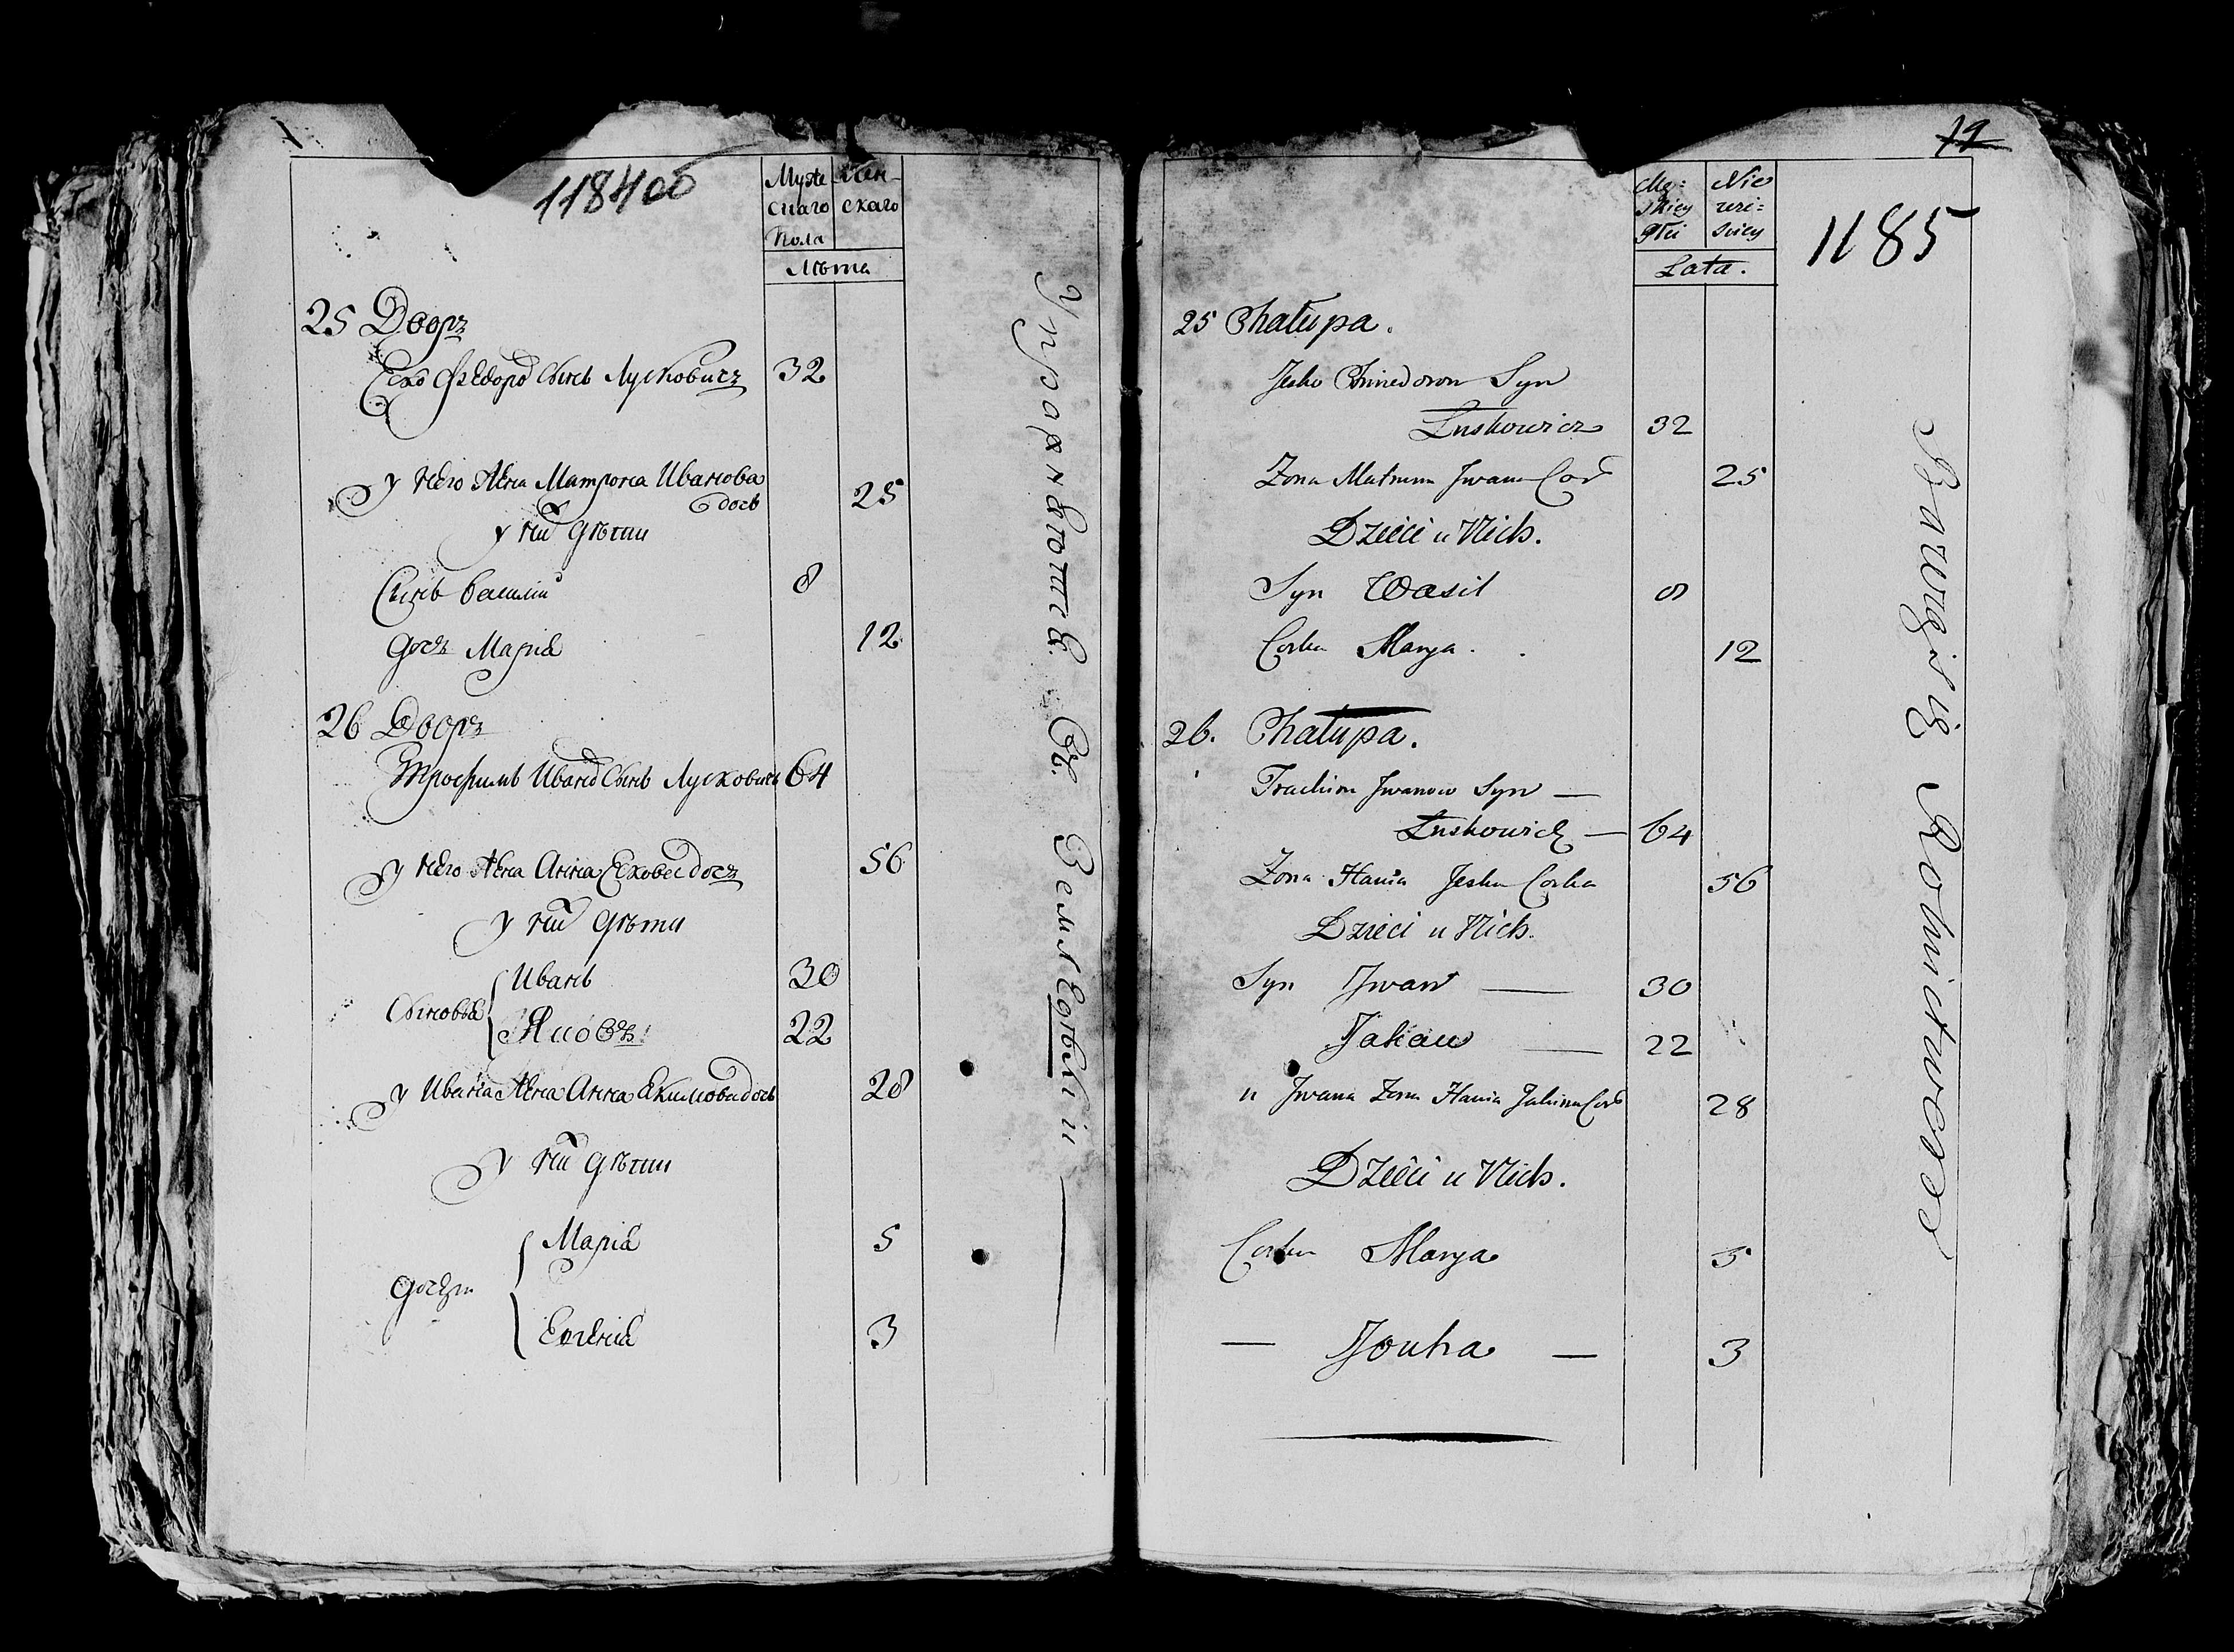 1184 об
Муже Жен-
скаго скаго
Пола
Лѣта
25 Дворъ
Еско Ѳедоровъ Сынъ Лусковичъ 32
У него жена Матрона Иванова
дочь 25
У них дѣти
Сынъ Василий 8
Дочь Марiя 12
26 Дворъ
Трофимъ Ивановъ Сынъ Лусковичъ 64
У него жена Анна Ескова дочь 56
У них дѣти
Сыновья Иванъ 30
Яковъ 22
У Ивана жена Анна Екимова дочь 28
У них дѣти
Дочери Марiя 5
3
Упражняются въ Земледѣлiи
19
1185
Mę: Nie
skiey wie:
Płci sciey
Lata.
25 Chałupa.
Jesko Syn
Łuskowicz 32
Zona Matruna Jwana Cor 25
Dzieci u Nich.
Syn Wasil 8
Corka Marya 12
26. Chałupa.
Trachim Jwanow Syn —
Łuskowicz — 64
Zona Hania Jeska Corka 56
Dzieci u Nich.
Syn Jwan — 30
Jakau — 22
u Jwana Zona Hania Jakima Cor 28
Dzieci u Nich.
Corka Marya 5
— Jouha — 3
Bawią się Rolnictwem